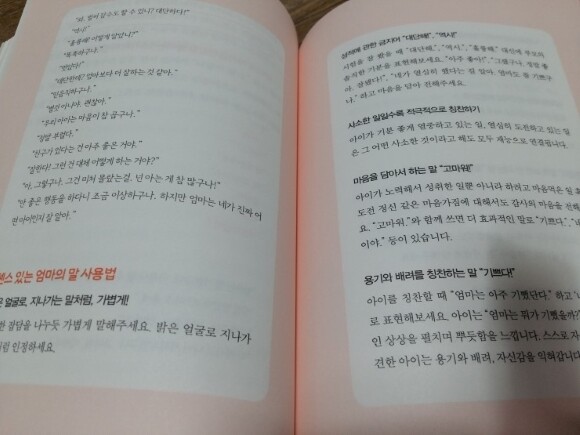 "와, 벌써 갈 수도 할 수 있니? 대단하다!"
"멋져!"
"훌륭해! 어떻게 알았니?"
"똑똑하구나."
"멋있다!"
"대단한데? 엄마보다 더 잘하는 것 같아."
"믿음직하구나."
"명진이니까, 괜찮아."
"우리 아이는 마음이 참 곱구나."
"정말 부럽다."
"친구가 있다는 건 아주 좋은 거야."
"잘한다! 그런 건 대체 어떻게 하는 거야?"
"아, 그렇구나. 그건 미처 몰랐는걸. 넌 아는 게 참 많구나!"
"안 좋은 행동을 하다니 조금 이상하구나. 하지만 엄마는 네가 진짜 어
떤 아이인지 잘 알아."
센스 있는 엄마의 말 사용법
은 얼굴로 지나가는 말처럼, 가볍게!
한 잡담을 나누듯 가볍게 말해주세요. 밝은 얼굴로 지나가
처럼 인정하세요.
성적에 관한 금지어 "대단해!", "역시"
시험을 잘 봤을 때 "대단해.", "역시.", "훌륭해." 대신에 부모의
솔직한 기분을 표현해보세요. "아주 좋아!", "그렇구나, 정말 좋
아. 잘됐다!", "네가 열심히 했다는 걸 알아. 엄마도 참 기쁘구
나." 라고 마음을 담아 전해주세요.
사소한 일일수록 적극적으로 칭찬하기
아이가 기분 좋게 열중하고 있는 일, 열심히 도전하고 있는 일
은 그 어떤 사소한 것이라고 해도 모두 재능으로 연결됩니다.
마음을 담아서 하는 말 "고마워"
아이가 노력해서 성취한 일뿐 아니라 하려고 마음먹은 일
도전 정신 같은 마음가짐에 대해서도 감사의 마음을 전해
요. "고마워."와 함께 쓰면 더 효과적인 말로 "기쁘다.",
이야." 등이 있습니다.
용기와 배려를 칭찬하는 말 "기쁘다!"
아이를 칭찬할 때 "엄마는 아주 기뻤단다." 하고
로 표현해보세요. 아이는 "엄마는 뭐가 기뻤을까?"
인 상상을 펼치며 뿌듯함을 느낍니다. 스스로
견한 아이는 용기와 배려, 자신감을 익혀갑니다.